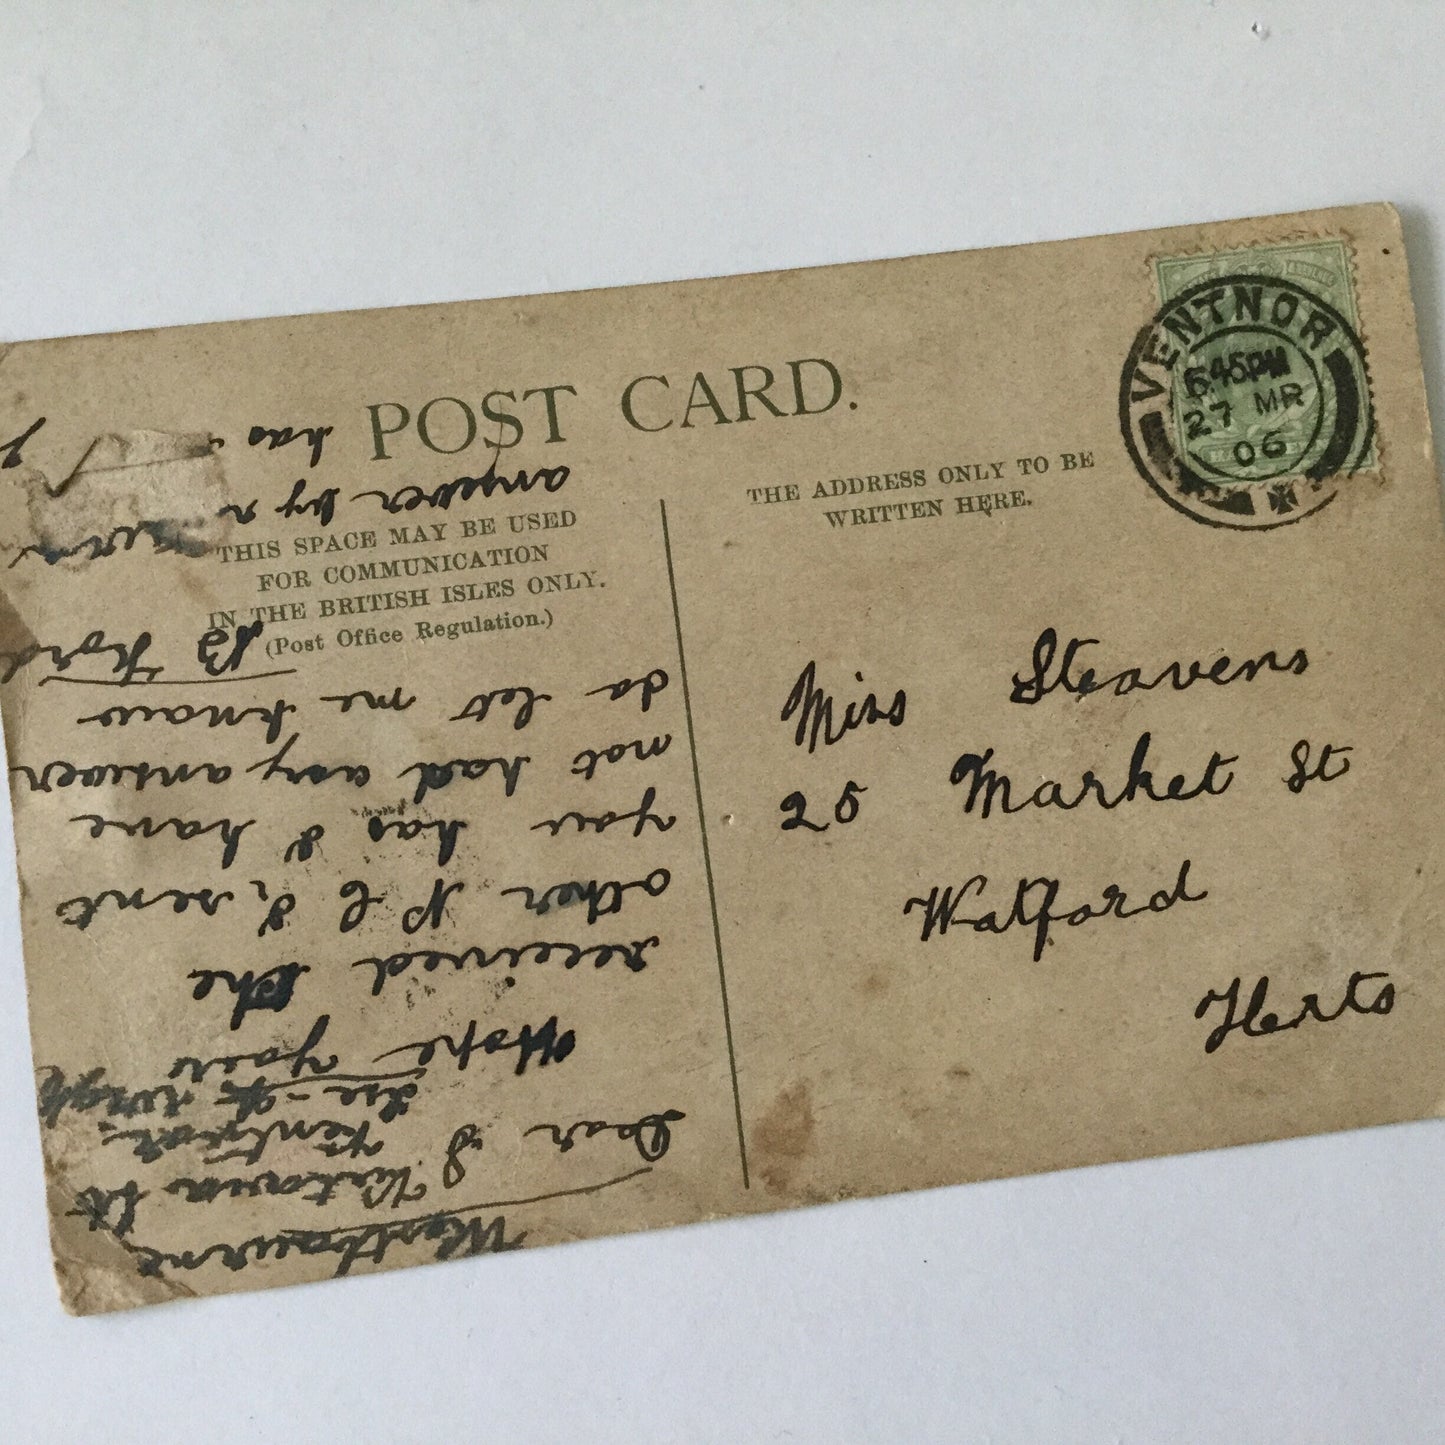 POST CARD.
THIS SPACE MAY BE USED
FOR COMMUNICATION
IN THE BRITISH ISLES ONLY.
(Post Office Regulation.)
THE ADDRESS ONLY TO BE
WRITTEN HERE.
VENTNOR
6.45PM
27 MR
06
Miss Steavens
25 Market St
Watford
Herts
Westbourne
Victoria St
Ventnor
Dear S
Hope you
received the
other P C I sent
you has I have
not had any answer
do let me know
B Ford
answer by
has